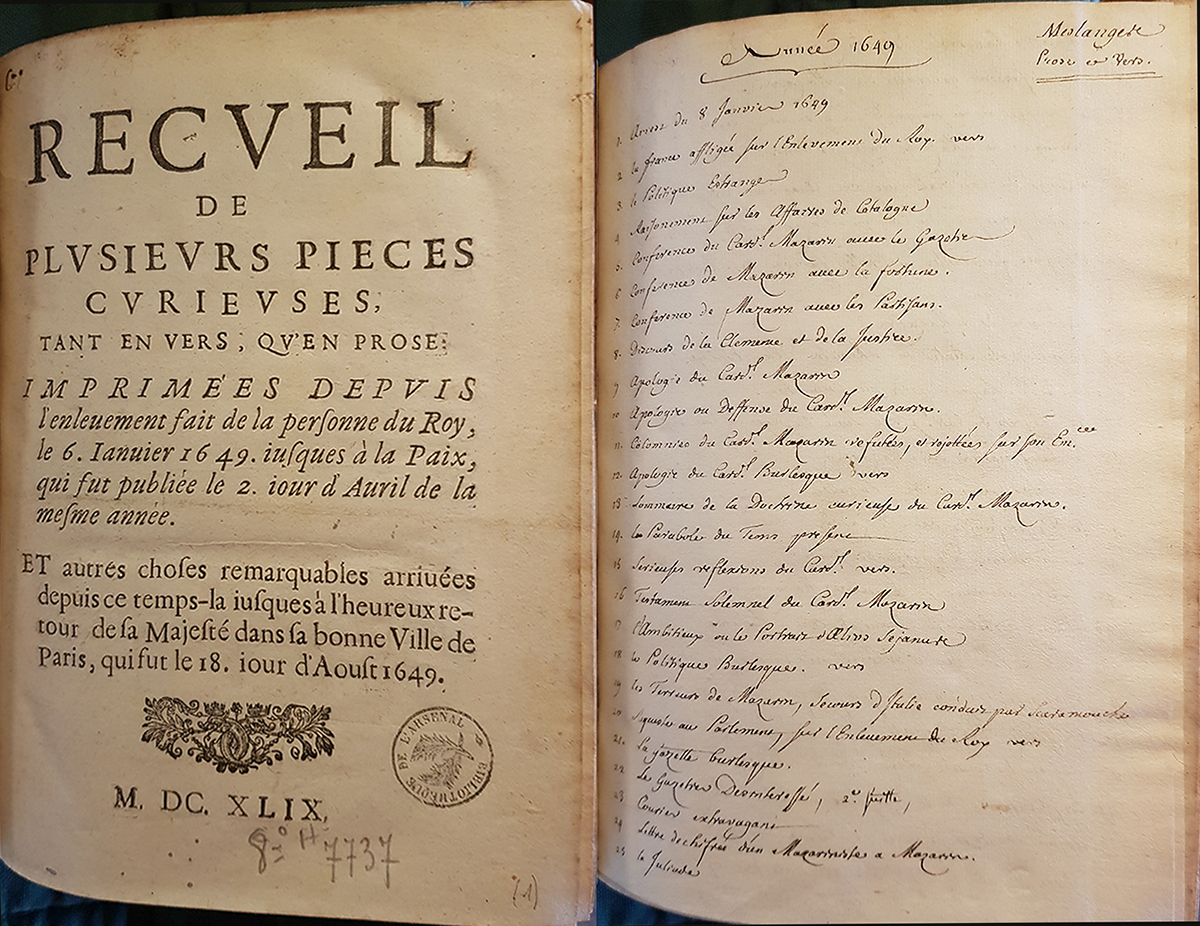 RECVEIL
DE
PLVSIEVRS PIECES
CVRIEVSES,
TANT EN VERS, QV'EN PROSE:
IMPRIMÉES DEPVIS
l'enleuement fait de la perſonne du Roy,
le 6. Ianuier 1649. iuſques à la Paix,
qui fut publiée le 2. iour d'Auril de la
meſme année.
ET autres choſes remarquables arriuées
depuis ce temps-la iuſques à l'heureux re-
tour de ſa Majeſté dans ſa bonne Ville de
Paris, qui fut le 18. iour d'Aouſt 1649.
BIBLIOTHEQUE DE L'ARSENAL
M. DC. XLIX.
8º H 7737
(1)
Année 1649
Meslangere
Prose et Vers.
1. Arrest du 8 Janvier 1649
2 la france affligée sur l'Enlevement du Roy. vers
3. le Politique Estrange
4 Raisonement sur les Affaires de Catalogne
5. Conference du Card.l Mazarin avec le Gazetier
6 Conference de Mazarin avec la fortune.
7. Conference de Mazarin avec les Partisans.
8. Discours de la Clemence et de la Justice.
9 Apologie du Card.l Mazarin
10 Apologie ou Deffense du Card.l Mazarin.
11. Calomnies du Card.l Mazarin refutées, et rejettées sur son Em.ce
12. Apologie du Card.l Burlesque vers
13 Sommaire de la Doctrine curieuse du Card.l Mazarin.
14. la Parabole du Tems present
15 Serieuses reflexions du Card.l vers.
16 Testament Solemnel du Card.l Mazarin
17 l'Ambitieux ou le Portrait d'Ælius Sejanus
18 le Politique Burlesque. vers
19 les Terreurs de Mazarin, secours d'Italie conduit par Scaramouche
20 Requeste au Parlement, sur l'Enlevement du Roy vers
21. La gazette burlesque.
22 Le Gazetier Desinteressé, 2.e suitte,
23 Courier extravagant
24 Lettre dechifrée d'un Mazariniste a Mazarin.
25 la Juliade